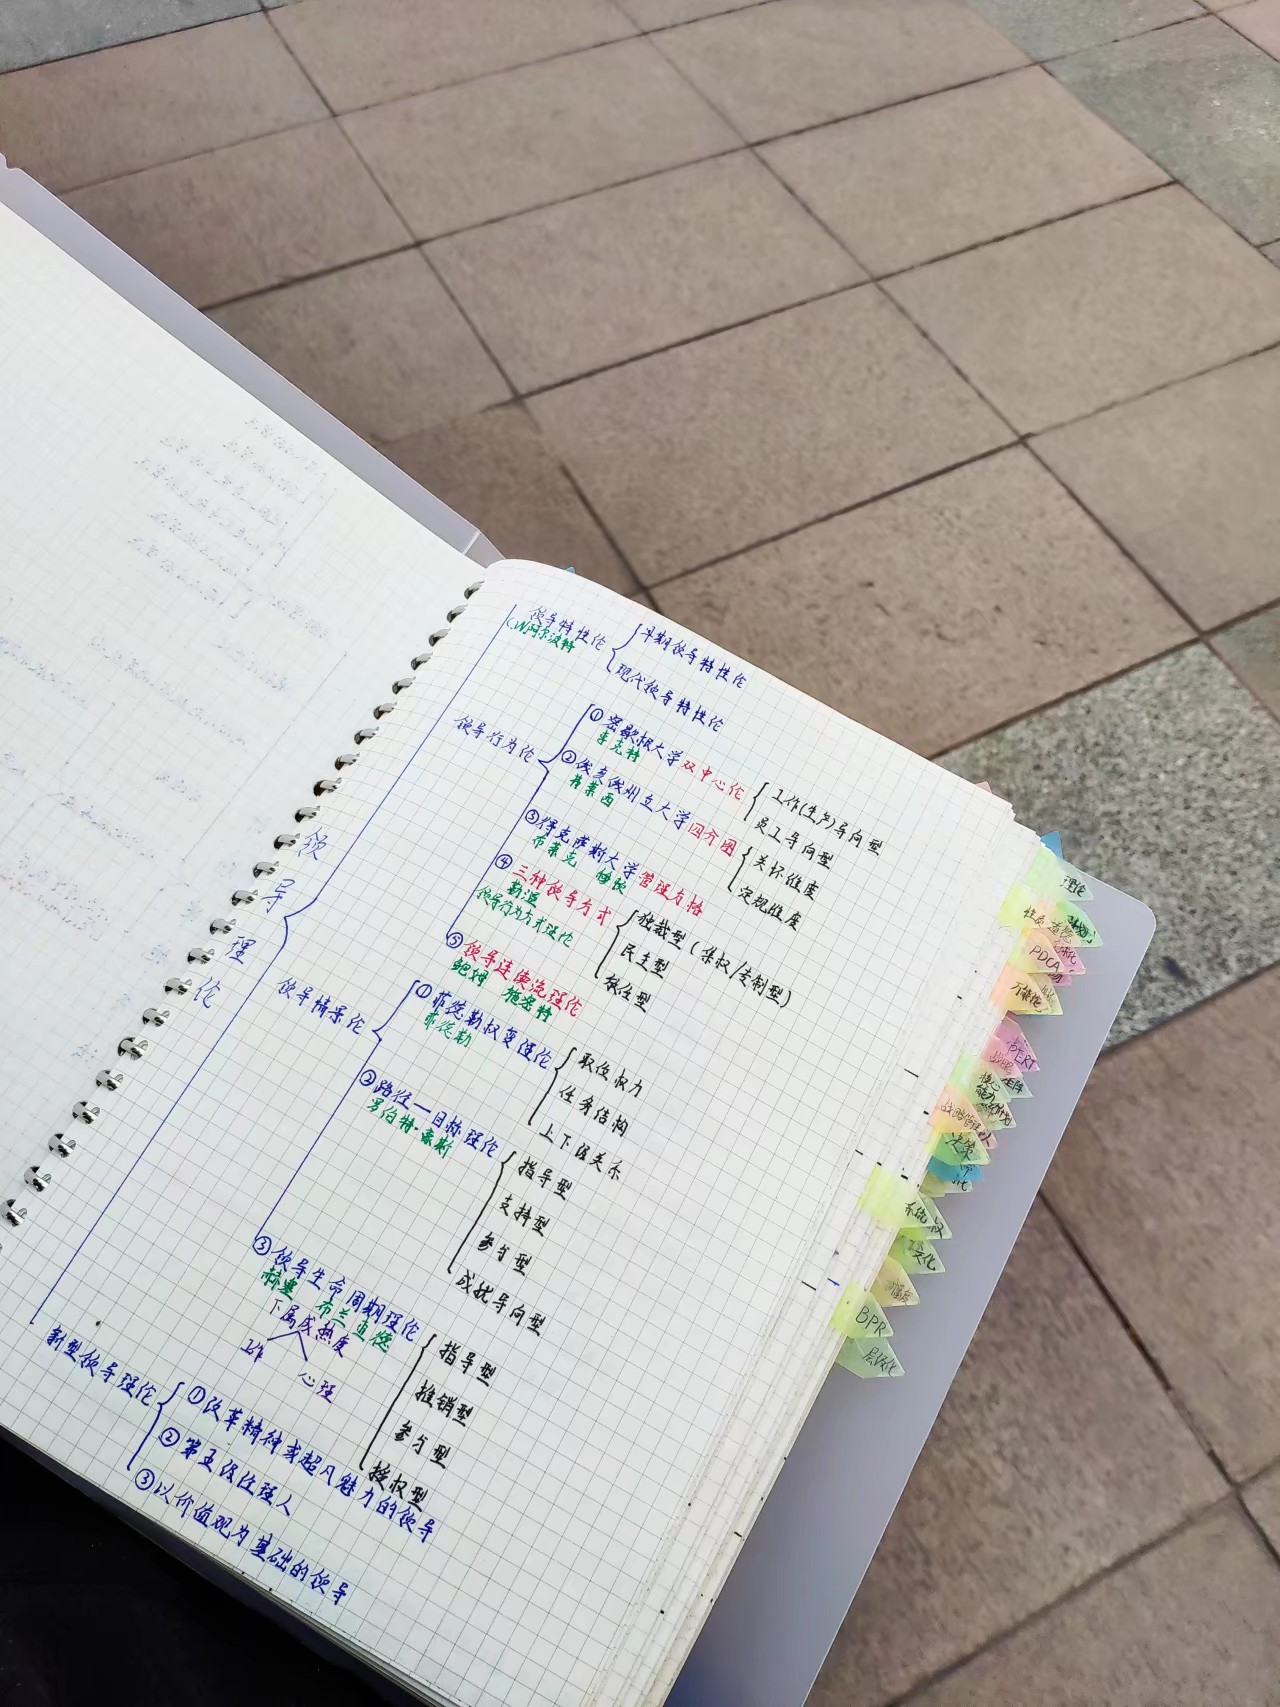 领导理论
领导特性论
C.W阿尔波特
早期领导特性论
现代领导特性论
领导行为论
①密歇根大学双中心论
李克特
工作(生产)导向型
员工导向型
②俄亥俄州立大学四分图
弗莱西
关怀维度
定规维度
③得克萨斯大学管理方格
布莱克
④三种领导方式
勒温
领导行为方式理论
独裁型(集权/专制型)
民主型
放任型
⑤领导连续流理论
鲍姆 施密特
领导情景论
①菲德勒权变理论
菲德勒
职位权力
任务结构
上下级关系
②路径—目标理论
罗伯特·豪斯
指导型
支持型
参与型
成就导向型
③领导生命周期理论
赫塞 布兰查德
下属成熟度
工作
心理
指导型
推销型
参与型
授权型
新型领导理论
①改革精神或超凡魅力的领导
②第五级经理人
③以价值观为基础的领导
理论
PDCA
PERT
战略管理
决策
系统
文化
BPR
层级化